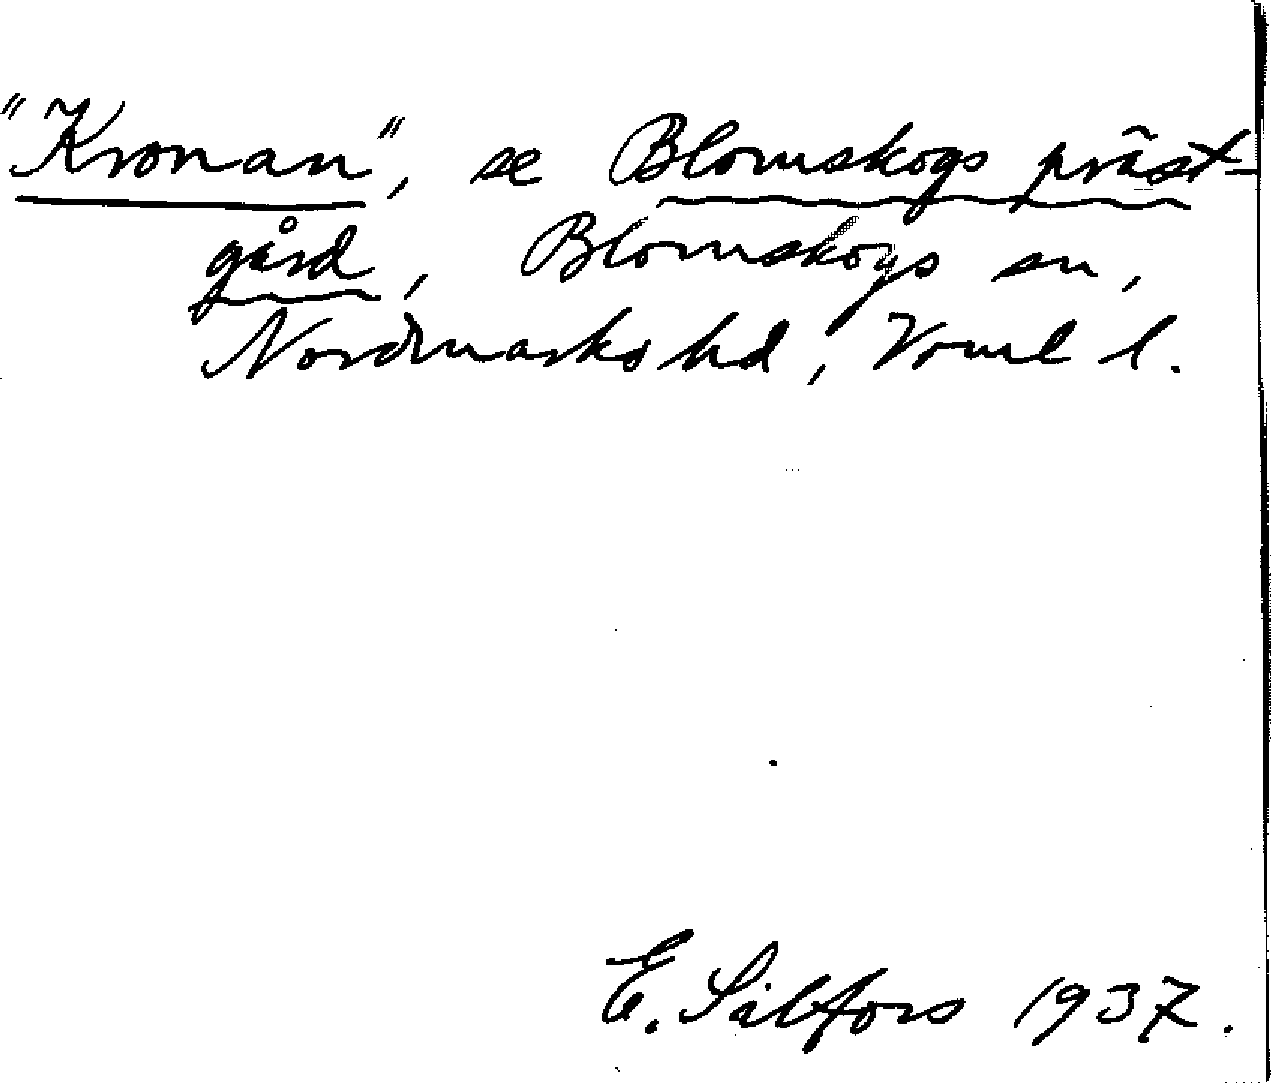 "Kronan", se Blomskogs präst-
gård, Blomskogs sn,
Nordmarks hd, Vrml l.
E. Sålfors 1937.